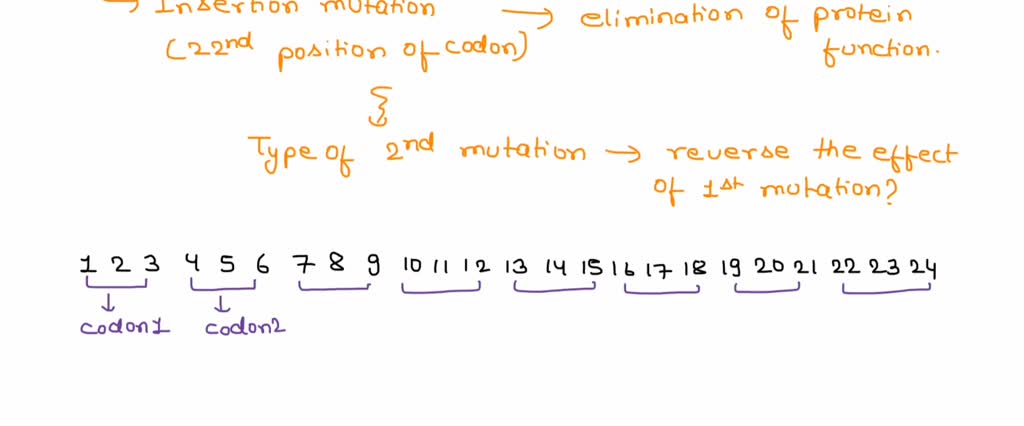 → Insertion mutation → elimination of protein
(22nd position of codon) function.
Type of 2nd mutation → reverse the effect
of 1st mutation?
1 2 3 4 5 6 7 8 9 10 11 12 13 14 15 16 17 18 19 20 21 22 23 24
codon1 codon2